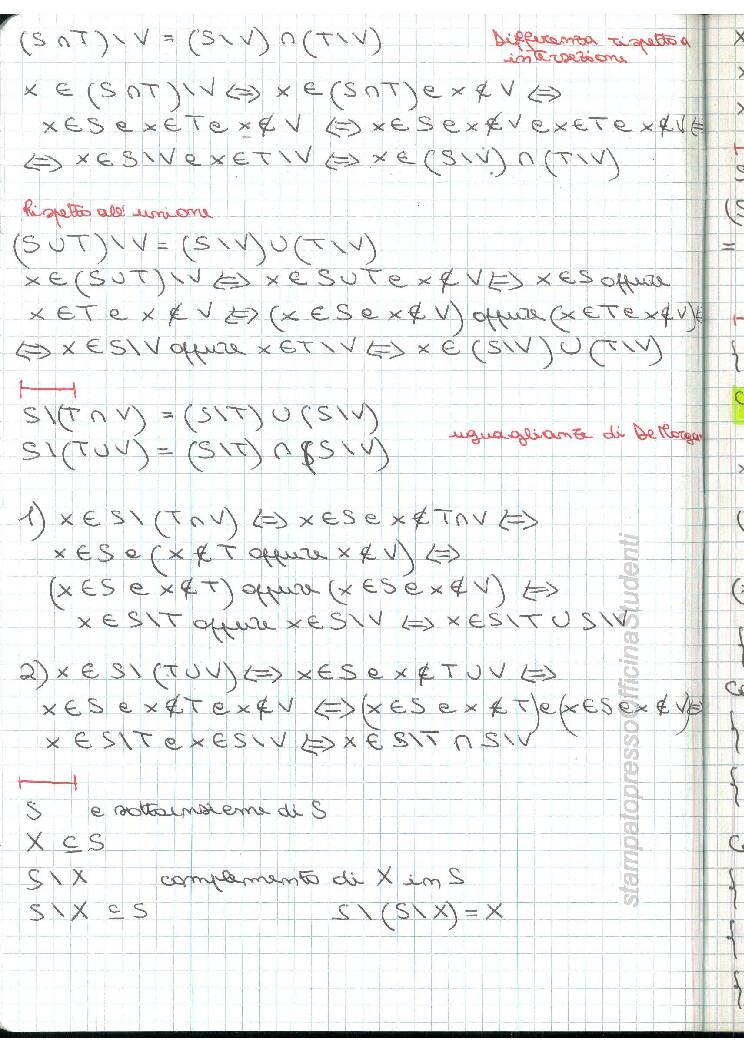 (S∩T)\V = (S\V) ∩ (T\V)
Differenza rispetto a
intersezione
x ∈ (S∩T)\V ⇔ x ∈ (S∩T) e x ∉ V ⇔
x ∈ S e x ∈ T e x ∉ V ⇔ x ∈ S e x ∉ V e x ∈ T e x ∉ V ⇔
⇔ x ∈ S\V e x ∈ T\V ⇔ x ∈ (S\V) ∩ (T\V)
Rispetto all'unione
(S∪T)\V = (S\V) ∪ (T\V)
x ∈ (S∪T)\V ⇔ x ∈ S∪T e x ∉ V ⇔ x ∈ S oppure
x ∈ T e x ∉ V ⇔ (x ∈ S e x ∉ V) oppure (x ∈ T e x ∉ V) ⇔
⇔ x ∈ S\V oppure x ∈ T\V ⇔ x ∈ (S\V) ∪ (T\V)
S\(T∩V) = (S\T) ∪ (S\V)
S\(T∪V) = (S\T) ∩ (S\V)
uguaglianze di De Morgan
1) x ∈ S\(T∩V) ⇔ x ∈ S e x ∉ T∩V ⇔
x ∈ S e (x ∉ T oppure x ∉ V) ⇔
(x ∈ S e x ∉ T) oppure (x ∈ S e x ∉ V) ⇔
x ∈ S\T oppure x ∈ S\V ⇔ x ∈ S\T ∪ S\V
2) x ∈ S\(T∪V) ⇔ x ∈ S e x ∉ T∪V ⇔
x ∈ S e x ∉ T e x ∉ V ⇔ (x ∈ S e x ∉ T) e (x ∈ S e x ∉ V) ⇔
x ∈ S\T e x ∈ S\V ⇔ x ∈ S\T ∩ S\V
S e sottoinsieme di S
X ⊆ S
S\X complemento di X in S
S\X ⊆ S S\(S\X) = X
stampatopressoOfficinaStudenti